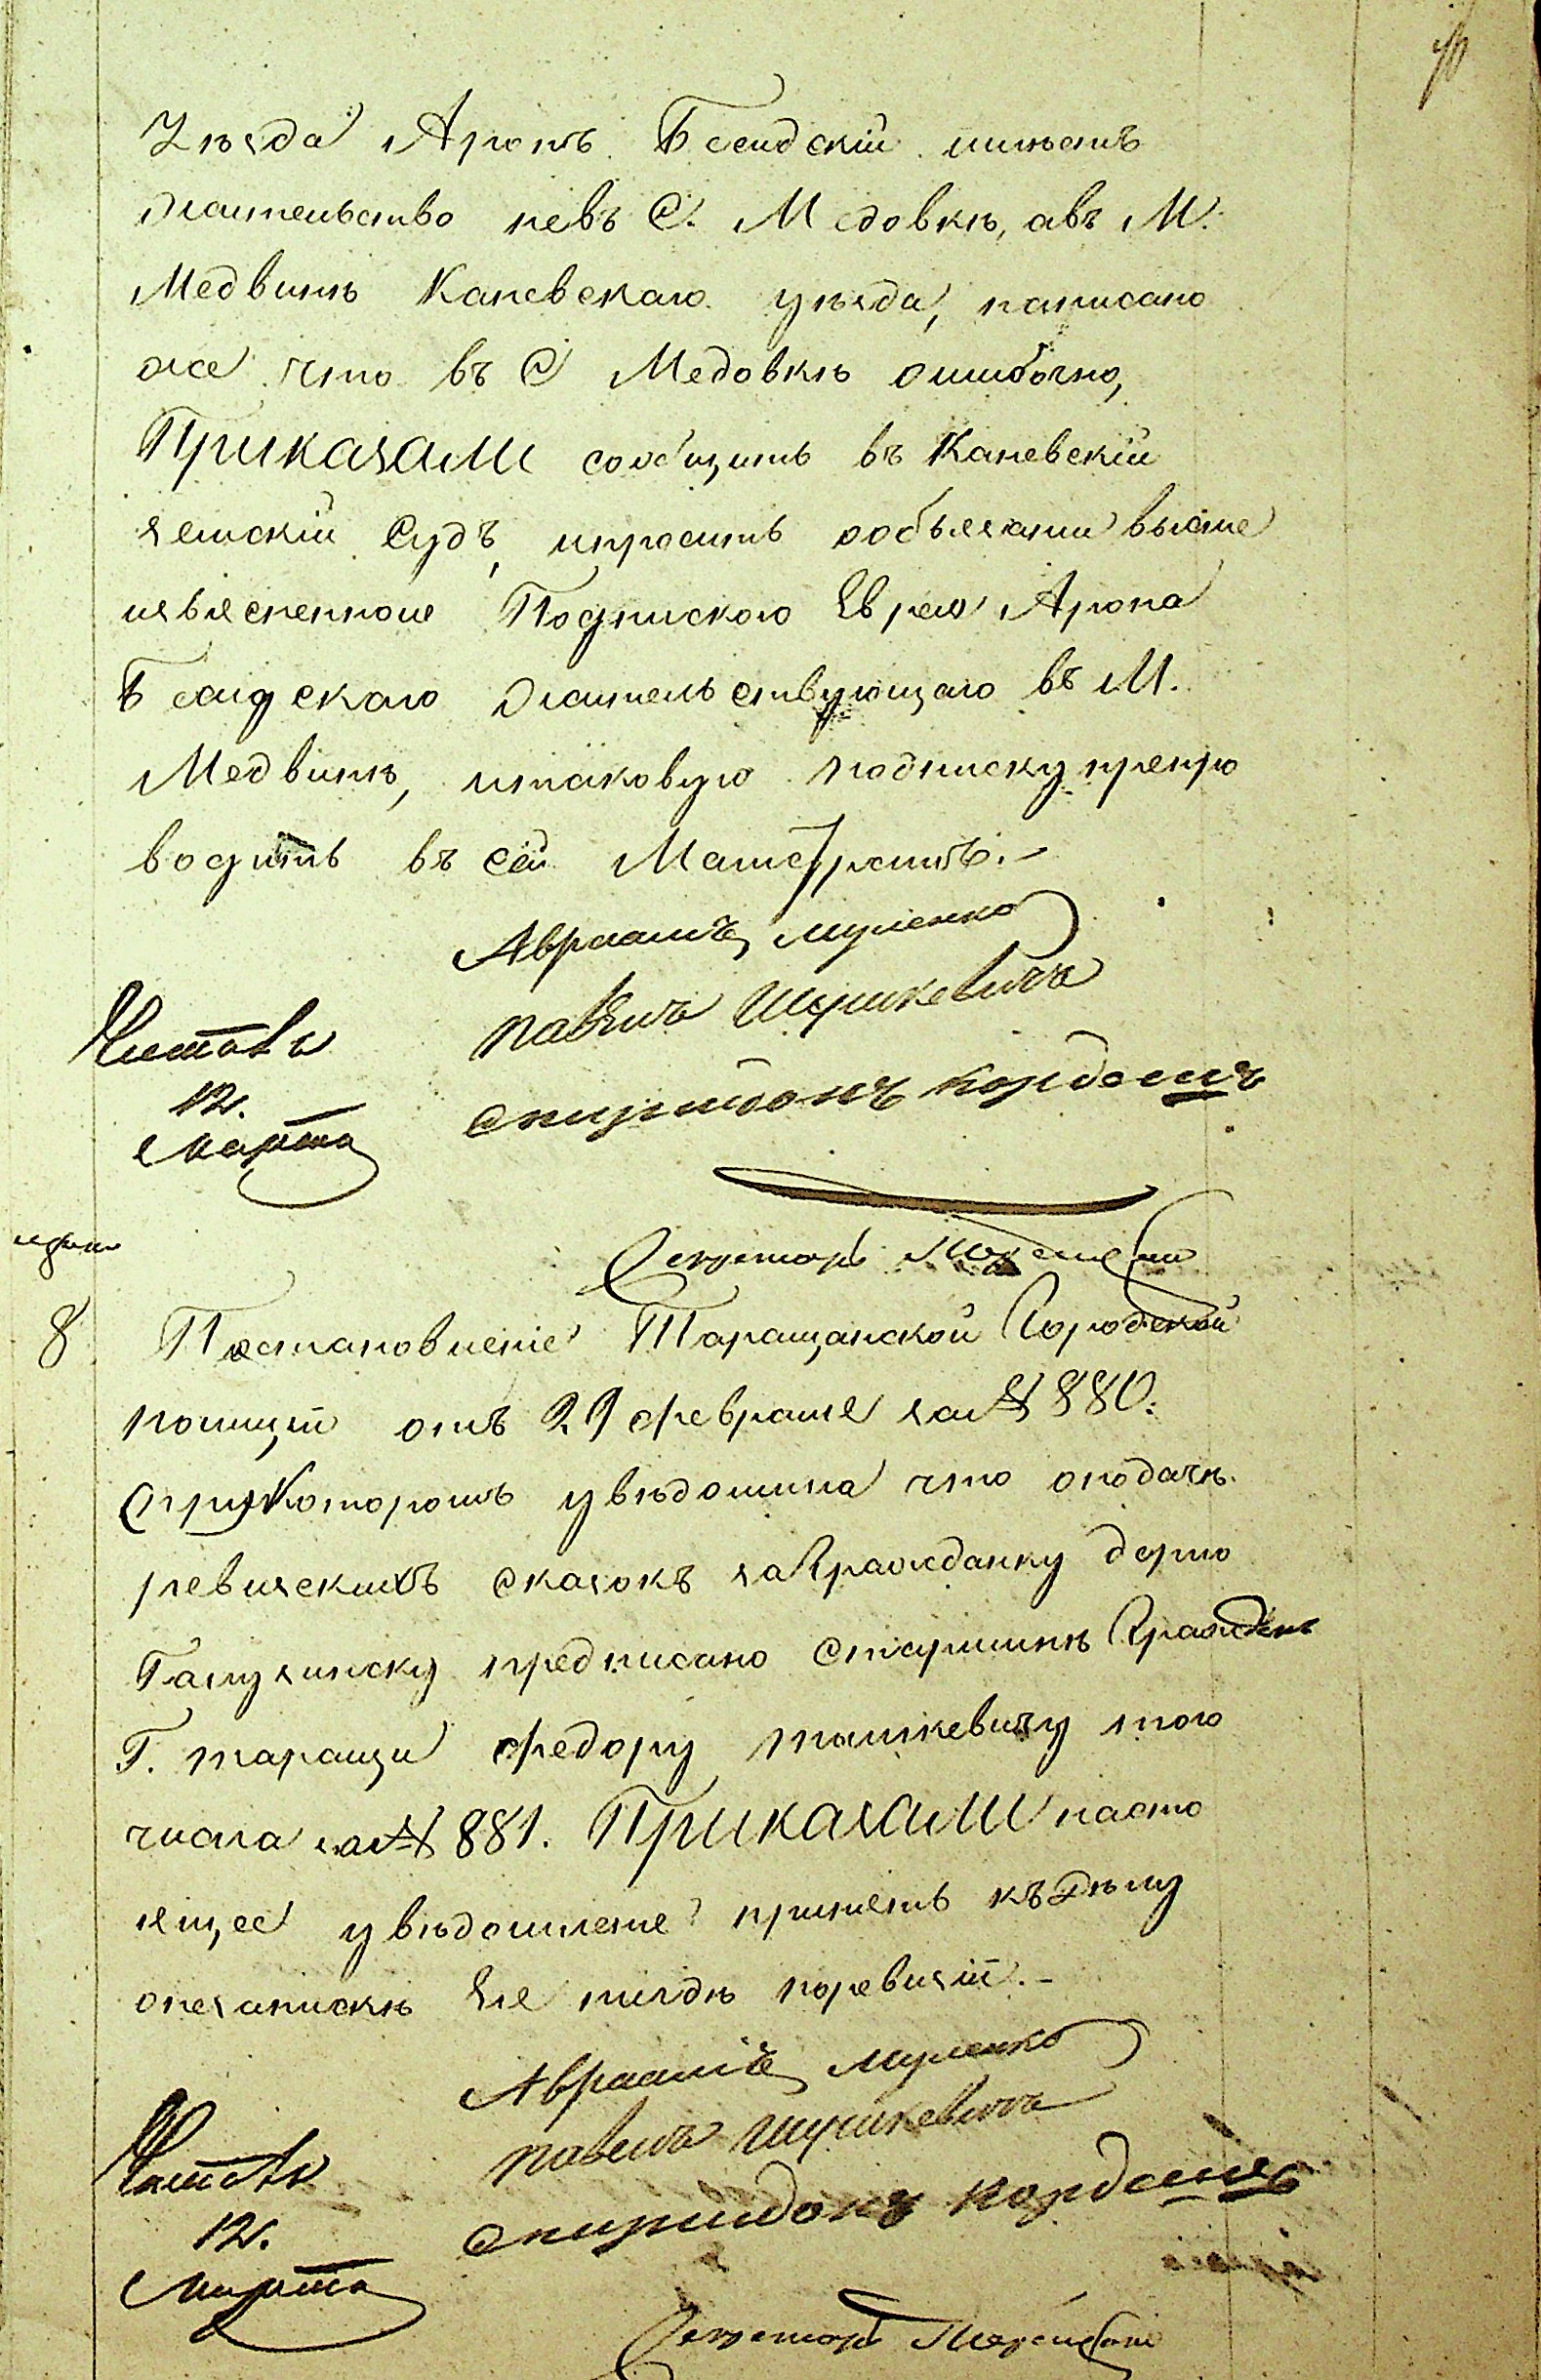 Уѣзда Аронъ Бсендскій имѣетъ
жительство невъ С. Медовкѣ, авъ М.
Медвинѣ Каневскаго уѣзда, написано
же что въ С Медовкѣ ошибочно,
Приказали сообщить въ Каневскій
земскій Судъ, ипросить ообъязании выше
изъясненное Подпискою Еврея Арона
Бсендскаго жительствующаго въ М.
Медвинѣ, итаковую подписку препро
водить въ сей Магистратъ.-
Авраамъ Муленко
павелъ Шушкевичъ
спиридонъ кордашъ
Читалъ
12.
Марта
Секретарь
8 Постановленіе Таращанской Городской
полиціи отъ 29 февраля за№ 880.
прикоторомъ увѣдомила что оподачѣ
ревизскихъ сказокъ заГражданку
предписано Старшинѣ Гражданъ
Г. таращи федору тышкевичу того
числа за№ 881. Приказали насто
ящее увѣдомленіе принять къДѣлу
онезапискѣ Ея нигдѣ поревизіи.-
Авраамъ Муленко
павелъ Шушкевичъ
спиридонъ кордашъ
Читалъ
12.
Марта
Секретарь